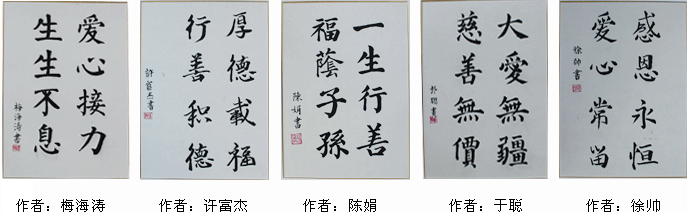 爱心接力
生生不息
梅海涛書
厚德載福
行善积德
許富杰書
一生行善
福蔭子孫
陳娟書
大愛無疆
慈善無價
于聰書
感恩永恒
爱心常留
徐帅書
作者：梅海涛
作者：许富杰
作者：陈娟
作者：于聪
作者：徐帅